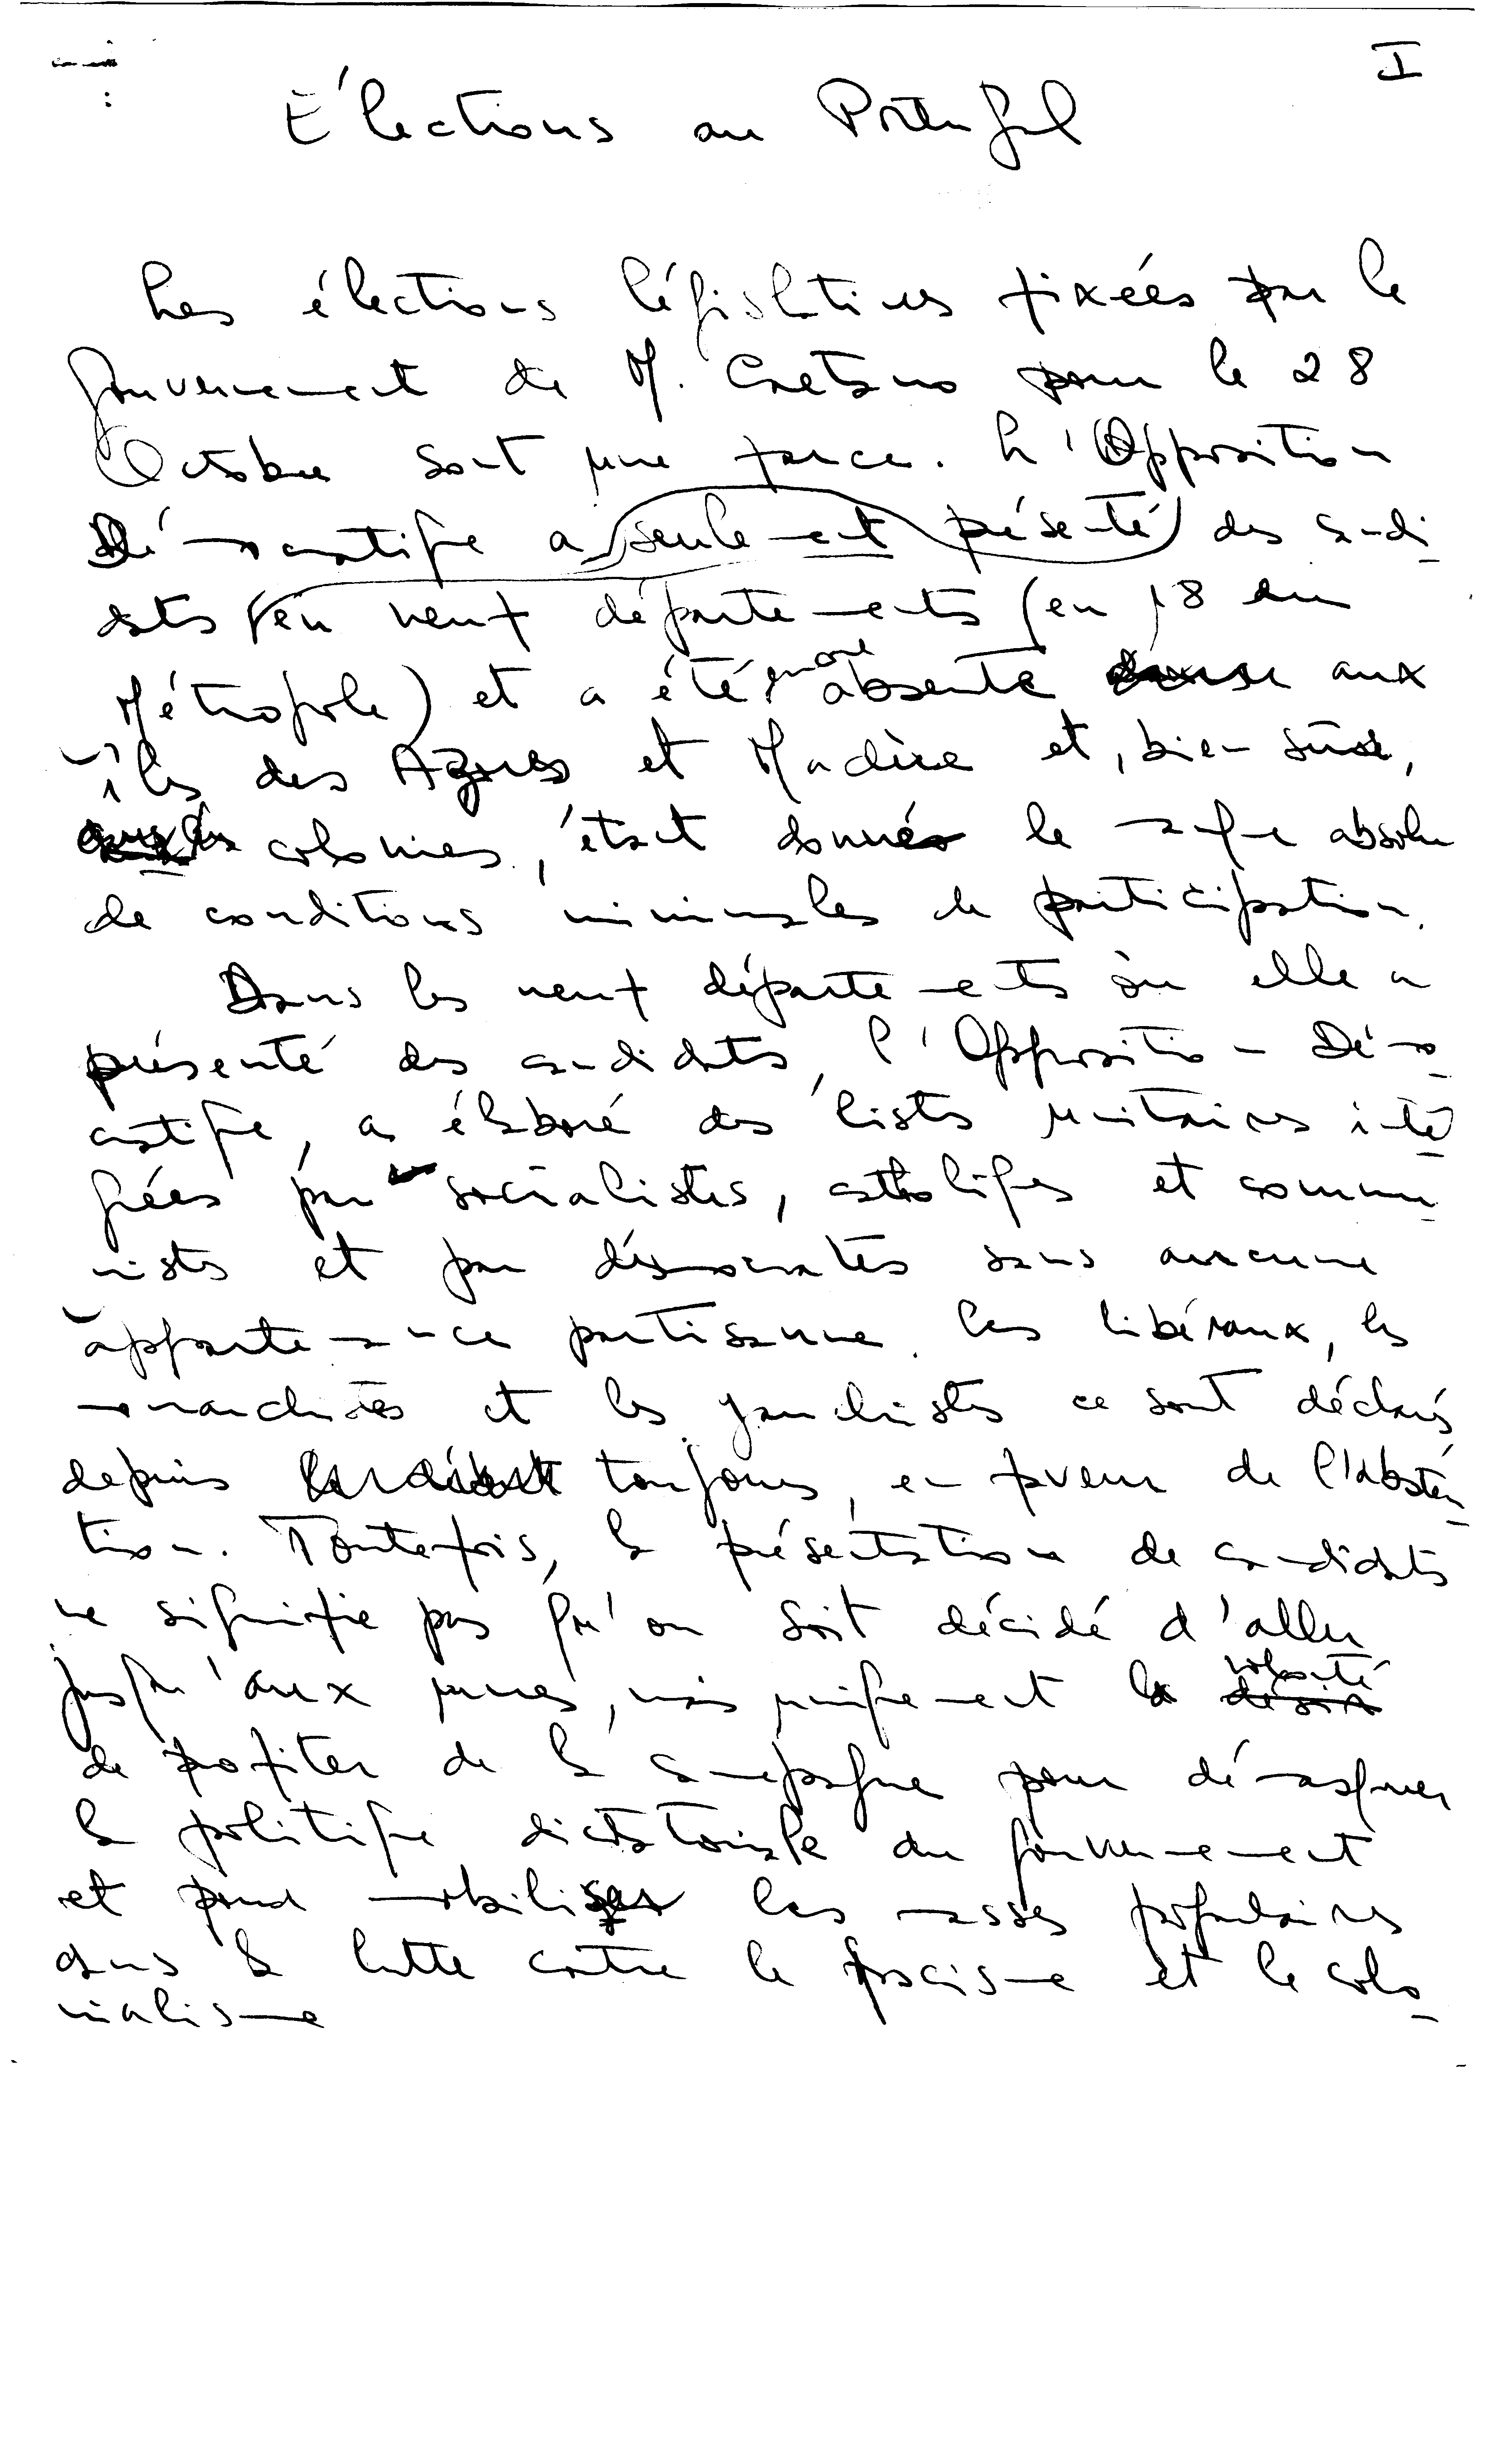 I
Élections au Portugal
Les élections législatives fixées par le
gouvernement de M. Caetano pour le 28
Octobre sont une farce. L'Opposition
Démocratique a seulement présenté des candi-
dats en neuf départements (en 18 en
Métropole) et a été encore absente aux
îles des Azores et Madère et, bien sûr,
aux colonies, étant donné le manque absolu
de conditions minimales de participation.
Dans les neuf départements où elle a
présenté des candidats, l'Opposition Démo-
cratique, a élaboré des listes unitaires inté-
grées par socialistes, catholiques et commu-
nistes et par démocrates sans aucune
appartenance partisanne. Les libéraux, les
monarchistes et les gauchistes ce sont déclarés
depuis toujours, en faveur de l'absten-
tion. Toutefois, la présentation de candidats
ne signifie pas qu'on soit décidé d'aller
jusqu'aux urnes, mais uniquement la volonté
de profiter de la campagne pour démasquer
la politique dictatoriale du gouvernement
et pour mobiliser les masses populaires
dans la lutte contre le fascisme et le colo-
nialisme